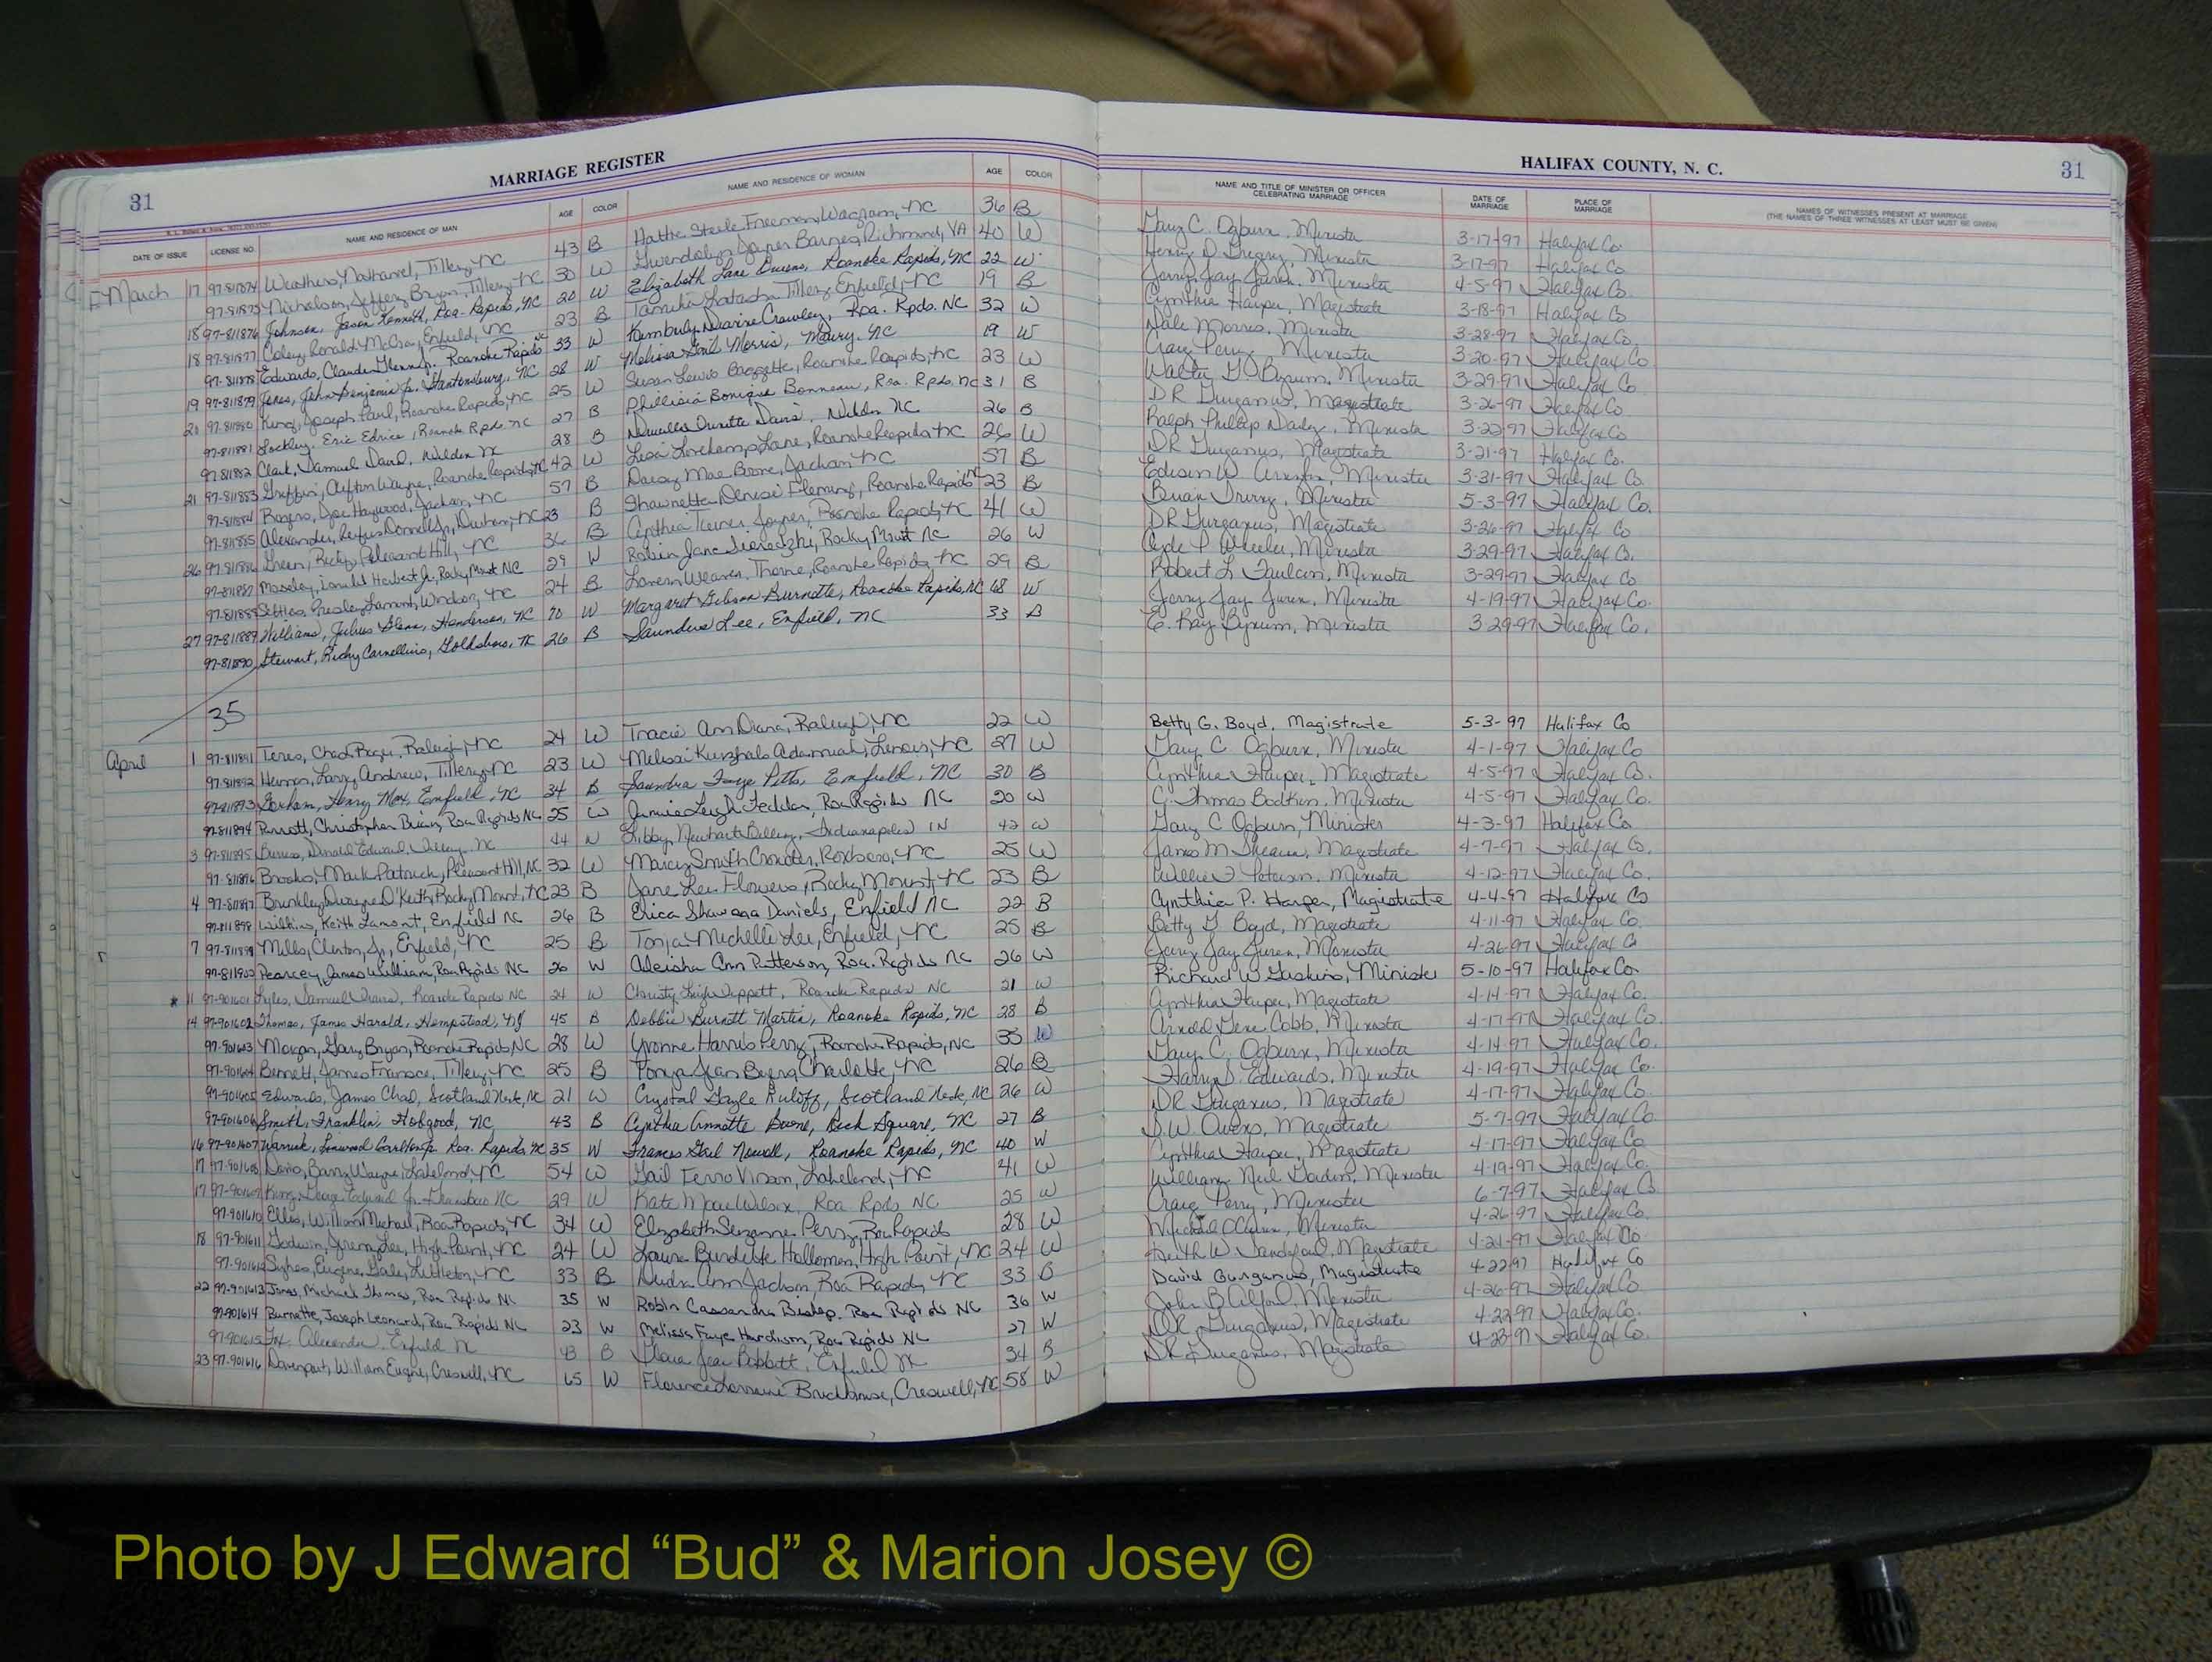 31 MARRIAGE REGISTER
HALIFAX COUNTY, N. C. 31
DATE OF ISSUE LICENSE NO. NAME AND RESIDENCE OF MAN AGE COLOR NAME AND RESIDENCE OF WOMAN AGE COLOR NAME AND TITLE OF MINISTER OR OFFICER CELEBRATING MARRIAGE DATE OF MARRIAGE PLACE OF MARRIAGE NAMES OF WITNESSES PRESENT AT MARRIAGE (THE NAMES OF THREE WITNESSES AT LEAST MUST BE GIVEN)
March 17 97-811874 Weathers, Nathaniel, Tillery, NC 43 B Hattie Steele Freeman, Wagram, NC 36 B Gary C. Ogburn, Minister 3-17-97 Halifax Co.
97-811875 Nicholson, Jeffery Bryan, Tillery, NC 30 W Gwendolyn Joyner Barnes, Richmond, VA 40 W Henry D. Gregory, Minister 3-17-97 Halifax Co
18 97-811876 Johnson, Jason Kenneth, Roa. Rapids, NC 20 W Elizabeth Lane Owens, Roanoke Rapids, NC 22 W Jerry Jay, Minister 4-5-97 Halifax Co.
18 97-811877 Coley, Ronald McCray, Enfield, NC 23 B Tameka Latasha Tillery, Enfield, NC 19 B Cynthia Harper, Magistrate 3-18-97 Halifax Co
97-811878 Edwards, Claude Glenn Jr., Roanoke Rapids NC 33 W Kimberly Crawley, Roa. Rpds. NC 32 W Dale Morris, Minister 3-28-97 Halifax Co.
19 97-811879 Jones, John Benjamin Jr., Stantonsburg, NC 28 W Melissa Gail Morris, Maury, NC 19 W Craig Perry, Minister 3-20-97 Halifax Co
21 97-811880 King, Joseph Paul, Roanoke Rapids, NC 25 W Susan Lewis, Roanoke Rapids, NC 23 W Walter G. Byrum, Minister 3-29-97 Halifax Co
97-811881 Lockley, Eric Edrice, Roanoke Rpds. NC 27 B Phillisia Bonique Bonneau, Roa. Rpds. NC 31 B DR Gurganus, Magistrate 3-26-97 Halifax Co
97-811882 Clark, Samuel David, Weldon NC 28 B Davis, Weldon NC 26 B Ralph Phillip, Minister 3-22-97 Halifax Co
21 97-811883 Griffin, Clifton Wayne, Roanoke Rapids, NC 42 W Lisa Lane, Roanoke Rapids, NC 26 W DR Gurganus, Magistrate 3-21-97 Halifax Co.
97-811884 Rogers, Joe Haywood, Jackson, NC 57 B Daisy Mae Boone, Jackson NC 57 B Edison W., Minister 3-31-97 Halifax Co.
97-811885 Alexander, Rufus Donnell Jr., Durham, NC 23 B Shawnette Denise Fleming, Roanoke Rapids NC 23 B Brian, Minister 5-3-97 Halifax Co.
26 97-811886 Green, Ricky, Pleasant Hill, NC 36 B Cynthia Joyner, Roanoke Rapids, NC 41 W DR Gurganus, Magistrate 3-26-97 Halifax Co
97-811887 Moseley, Herbert Jr., Rocky Mount NC 29 W Robin Jane, Rocky Mount NC 26 W Clyde P. Wheeler, Minister 3-29-97 Halifax Co.
97-811888 Settles, Presley Lamont, Windsor, NC 24 B Loren Weaver Thorne, Roanoke Rapids, NC 29 B Robert L Faulcon, Minister 3-29-97 Halifax Co
27 97-811889 Williams, Julius Glenn, Henderson, NC 70 W Margaret Gibson Burnette, Roanoke Rapids, NC 68 W Jerry Jay, Minister 4-19-97 Halifax Co.
97-811890 Stewart, Ricky, Goldsboro, NC 26 B Saundra Lee, Enfield, NC 33 B E. Ray Byrum, Minister 3-29-97 Halifax Co.
35
April 1 97-811891 Chad, Raleigh, NC 24 W Tracie Ann Diana, Raleigh, NC 22 W Betty G. Boyd, Magistrate 5-3-97 Halifax Co
97-811892 Larry Andrew, Tillery, NC 23 W Melissa Adamiak, Lenoir, NC 27 W Gary C. Ogburn, Minister 4-1-97 Halifax Co
97-811893 Gorham, Henry Max, Enfield, NC 34 B Saundra Faye Pitts, Enfield, NC 30 B Cynthia Harper, Magistrate 4-5-97 Halifax Co.
97-811894 Parrott, Christopher Brian, Roa Rapids NC 25 W Jamie Leigh, Roa Rapids NC 20 W C. Thomas Bodkin, Minister 4-5-97 Halifax Co.
3 97-811895 Donald Edward, NC 44 W Libby, Indianapolis IN 42 W Gary C Ogburn, Minister 4-3-97 Halifax Co
97-811896 Brooks, Mark Patrick, Pleasant Hill, NC 32 W Marcy Smith Crowder, Roxboro, NC 25 W James M, Magistrate 4-7-97 Halifax Co.
4 97-811897 Brinkley, Dwayne O'Keith, Rocky Mount, NC 23 B Jane Lee Flowers, Rocky Mount, NC 23 B Willie, Minister 4-12-97 Halifax Co.
97-811898 Wilkins, Keith Lamont, Enfield NC 26 B Erica Shawana Daniels, Enfield NC 22 B Cynthia P. Harper, Magistrate 4-4-97 Halifax Co
7 97-811899 Mills, Clinton, Jr, Enfield, NC 25 B Tonja Michelle Lee, Enfield, NC 25 B Betty G. Boyd, Magistrate 4-11-97 Halifax Co.
97-811900 Pearcey, James William, Roa Rapids NC 26 W Aleisha Ann Patterson, Roa. Rapids NC 26 W Jerry Jay, Minister 4-26-97 Halifax Co
* 11 97-901601 Lyles, Samuel, Roanoke Rapids NC 24 W Christy Leigh Tippett, Roanoke Rapids NC 21 W Richard W Gaskins, Minister 5-10-97 Halifax Co
14 97-901602 Thomas, James Harald, Hempstead, NY 45 B Debbie Burnett Martin, Roanoke Rapids, NC 28 B Cynthia Harper, Magistrate 4-14-97 Halifax Co.
97-901603 Morgan, Gary Bryan, Roanoke Rapids, NC 28 W Yvonne Harris Perry, Roanoke Rapids, NC 35 W Arnold Gene Cobb, Minister 4-17-97 Halifax Co.
97-901604 Bennett, James Francis, Tillery, NC 25 B Tonya Jean, Charlotte, NC 26 B Gary C. Ogburn, Minister 4-14-97 Halifax Co.
97-901605 Edwards, James Chad, Scotland Neck, NC 21 W Crystal Gayle, Scotland Neck, NC 26 W Harry S. Edwards, Minister 4-19-97 Halifax Co.
97-901606 Smith, Franklin, Hobgood, NC 43 B Cynthia Annette Boone, Rich Square, NC 27 B DR Gurganus, Magistrate 4-17-97 Halifax Co
16 97-901607 Warrick, Linwood Carlton Jr. Roa. Rapids NC 35 W Frances Gail Nowell, Roanoke Rapids, NC 40 W Owens, Magistrate 5-7-97 Halifax Co
17 97-901608 Davis, Barry Wayne, Lakeland, NC 54 W Gail Ferro Vinson, Lakeland, NC 41 W Cynthia Harper, Magistrate 4-17-97 Halifax Co
17 97-901609 King, George, NC 29 W Kate Wilson, Roa Rpds NC 25 W William Neil, Minister 4-19-97 Halifax Co.
97-901610 Ellis, William Michael, Roa Rapids, NC 34 W Elizabeth Suzanne Perry, Roa Rapids 28 W Craig Perry, Minister 6-7-97 Halifax Co
18 97-901611 Godwin, Jeremy Lee, High Point, NC 24 W Laura Burdette Holloman, High Point, NC 24 W Michael, Minister 4-26-97 Halifax Co.
97-901612 Sykes, Eugene Gale, Littleton, NC 33 B Ann Jackson, Roa Rapids, NC 33 B Keith W., Magistrate 4-21-97 Halifax Co
22 97-901613 Jones, Michael Thomas, Roa Rapids NC 35 W Robin Cassandra Bishop, Roa Rapids NC 36 W David Gurganus, Magistrate 4-22-97 Halifax Co
97-901614 Burnette, Joseph Leonard, Roa Rapids NC 23 W Melissa Faye Hardison, Roa Rapids NC 27 W John B Alford, Minister 4-26-97 Halifax Co.
97-901615 Alexander, Enfield NC 43 B Jean, Enfield NC 34 B DR Gurganus, Magistrate 4-22-97 Halifax Co.
23 97-901616 Davenport, William Eugene, Creswell, NC 65 W Florence Lorraine Brickhouse, Creswell, NC 58 W DR Gurganus, Magistrate 4-23-97 Halifax Co.
Photo by J Edward “Bud” & Marion Josey ©